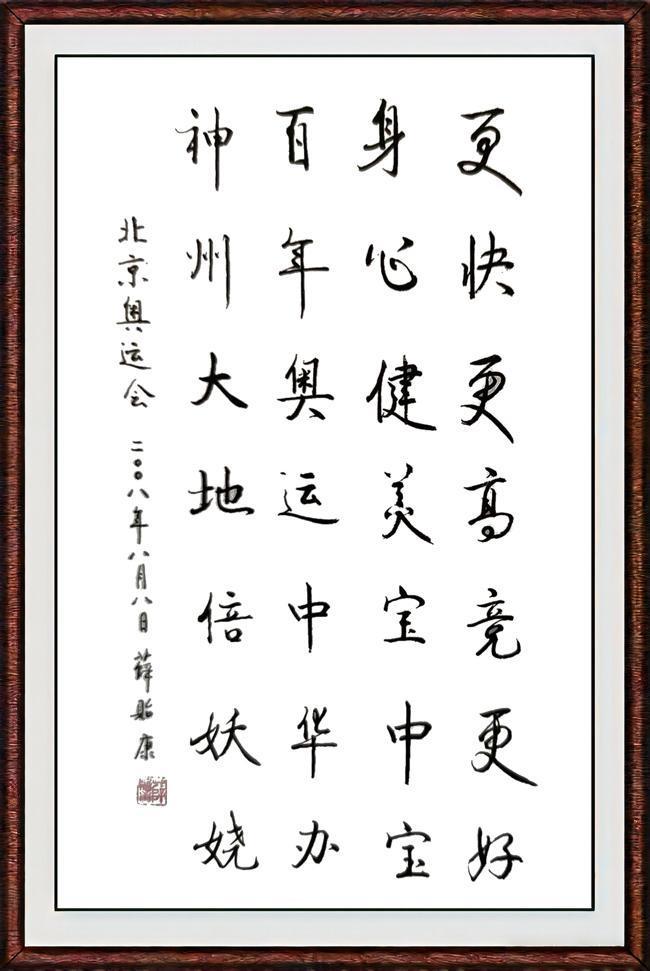 更快更高竞更好
身心健美宝中宝
百年奥运中华办
神州大地倍妖娆
北京奥运会 二〇〇八年八月八日 薛贻康